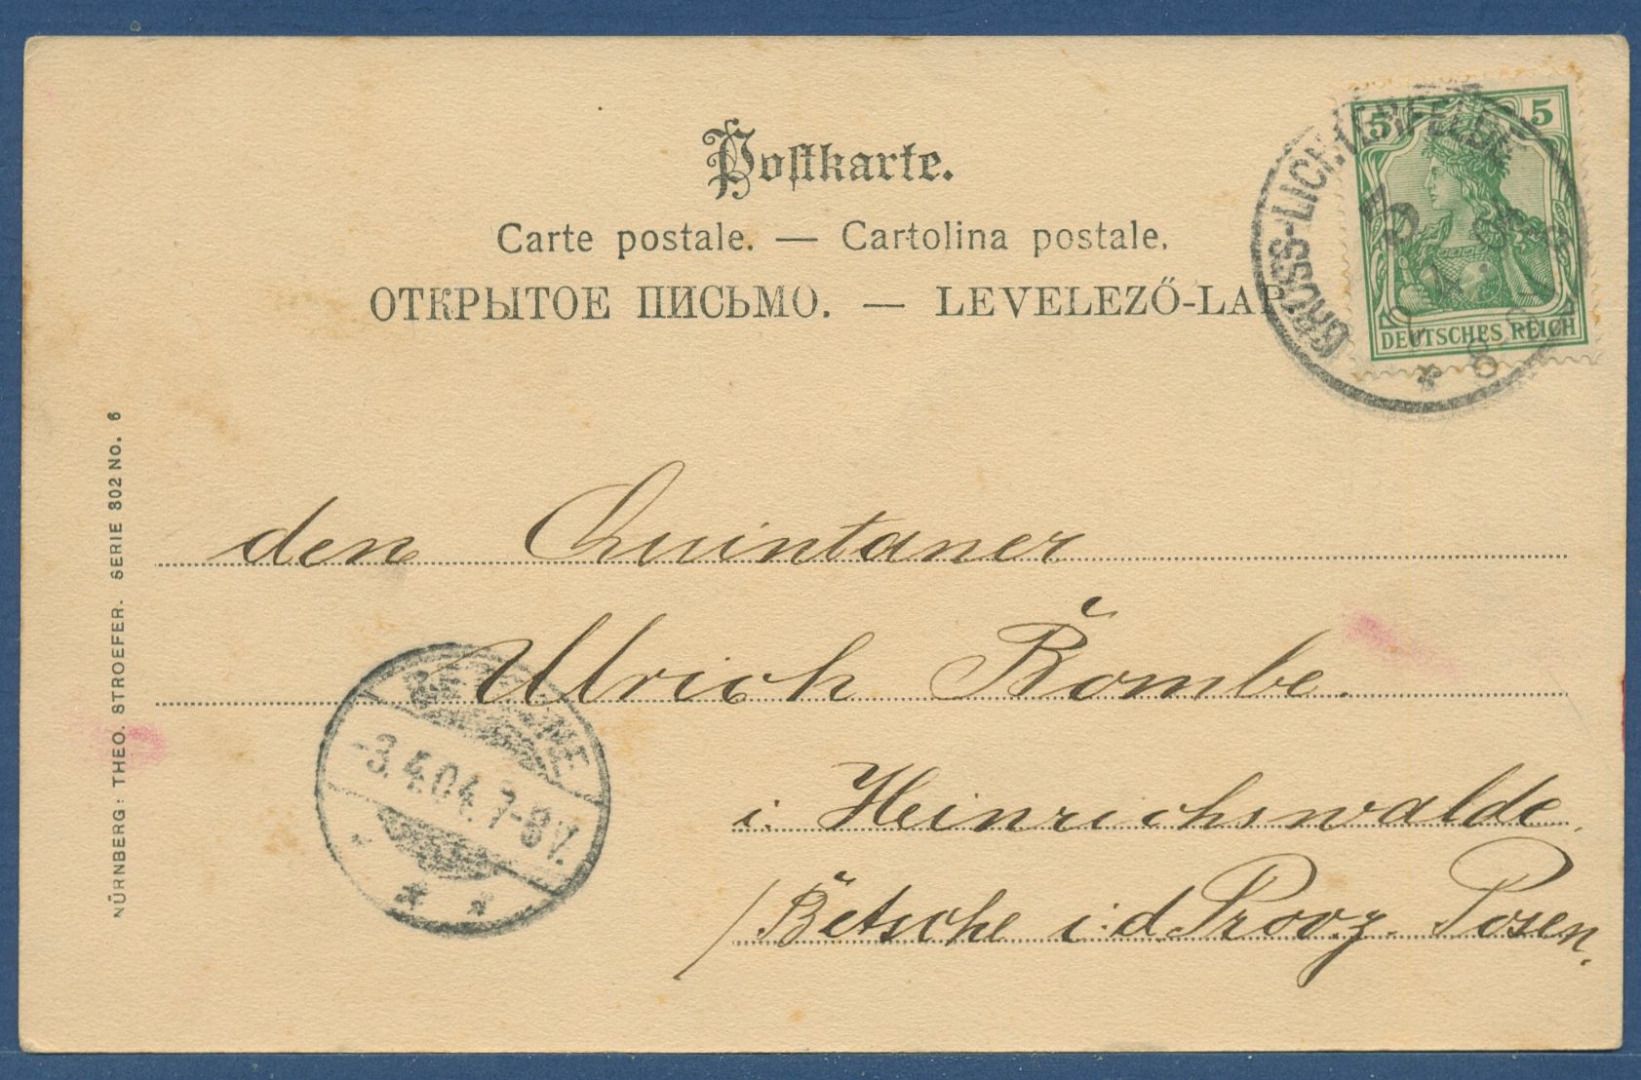 Postkarte.
Carte postale. — Cartolina postale.
ОТКРЫТОЕ ПИСЬМО. — LEVELEZŐ-LAP
5 5
DEUTSCHES REICH
GROSS-LICHTERFELDE
NÜRNBERG: THEO. STROEFER. SERIE 302 No. 6
den Quintaner
Ulrich Bombe.
i. Heinrichswalde
/Betsche i. d. Provz. Posen.
-3.4.04.7-8V.